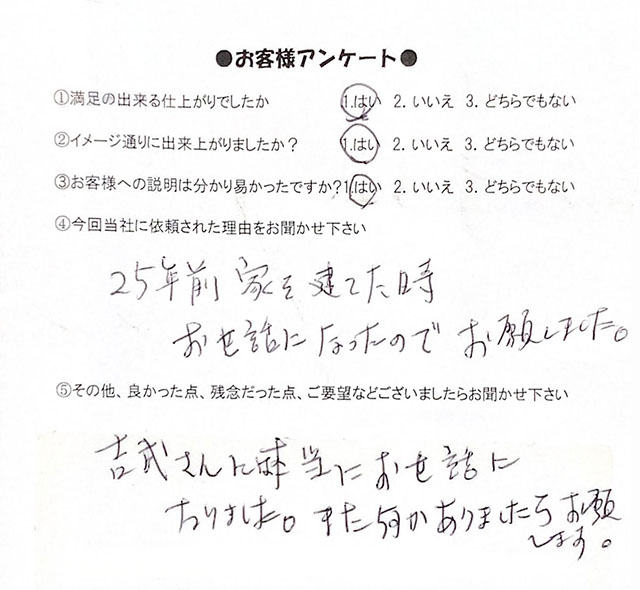 ●お客様アンケート●
①満足の出来る仕上がりでしたか 1.はい 2.いいえ 3.どちらでもない
②イメージ通りに出来上がりましたか？ 1.はい 2.いいえ 3.どちらでもない
③お客様への説明は分かり易かったですか？1.はい 2.いいえ 3.どちらでもない
④今回当社に依頼された理由をお聞かせ下さい
25年前 家を建てた時
お世話になったので お願しました。
⑤その他、良かった点、残念だった点、ご要望などございましたらお聞かせ下さい
吉武さんに本当にお世話に
なりました。また何かありましたらお願
します。